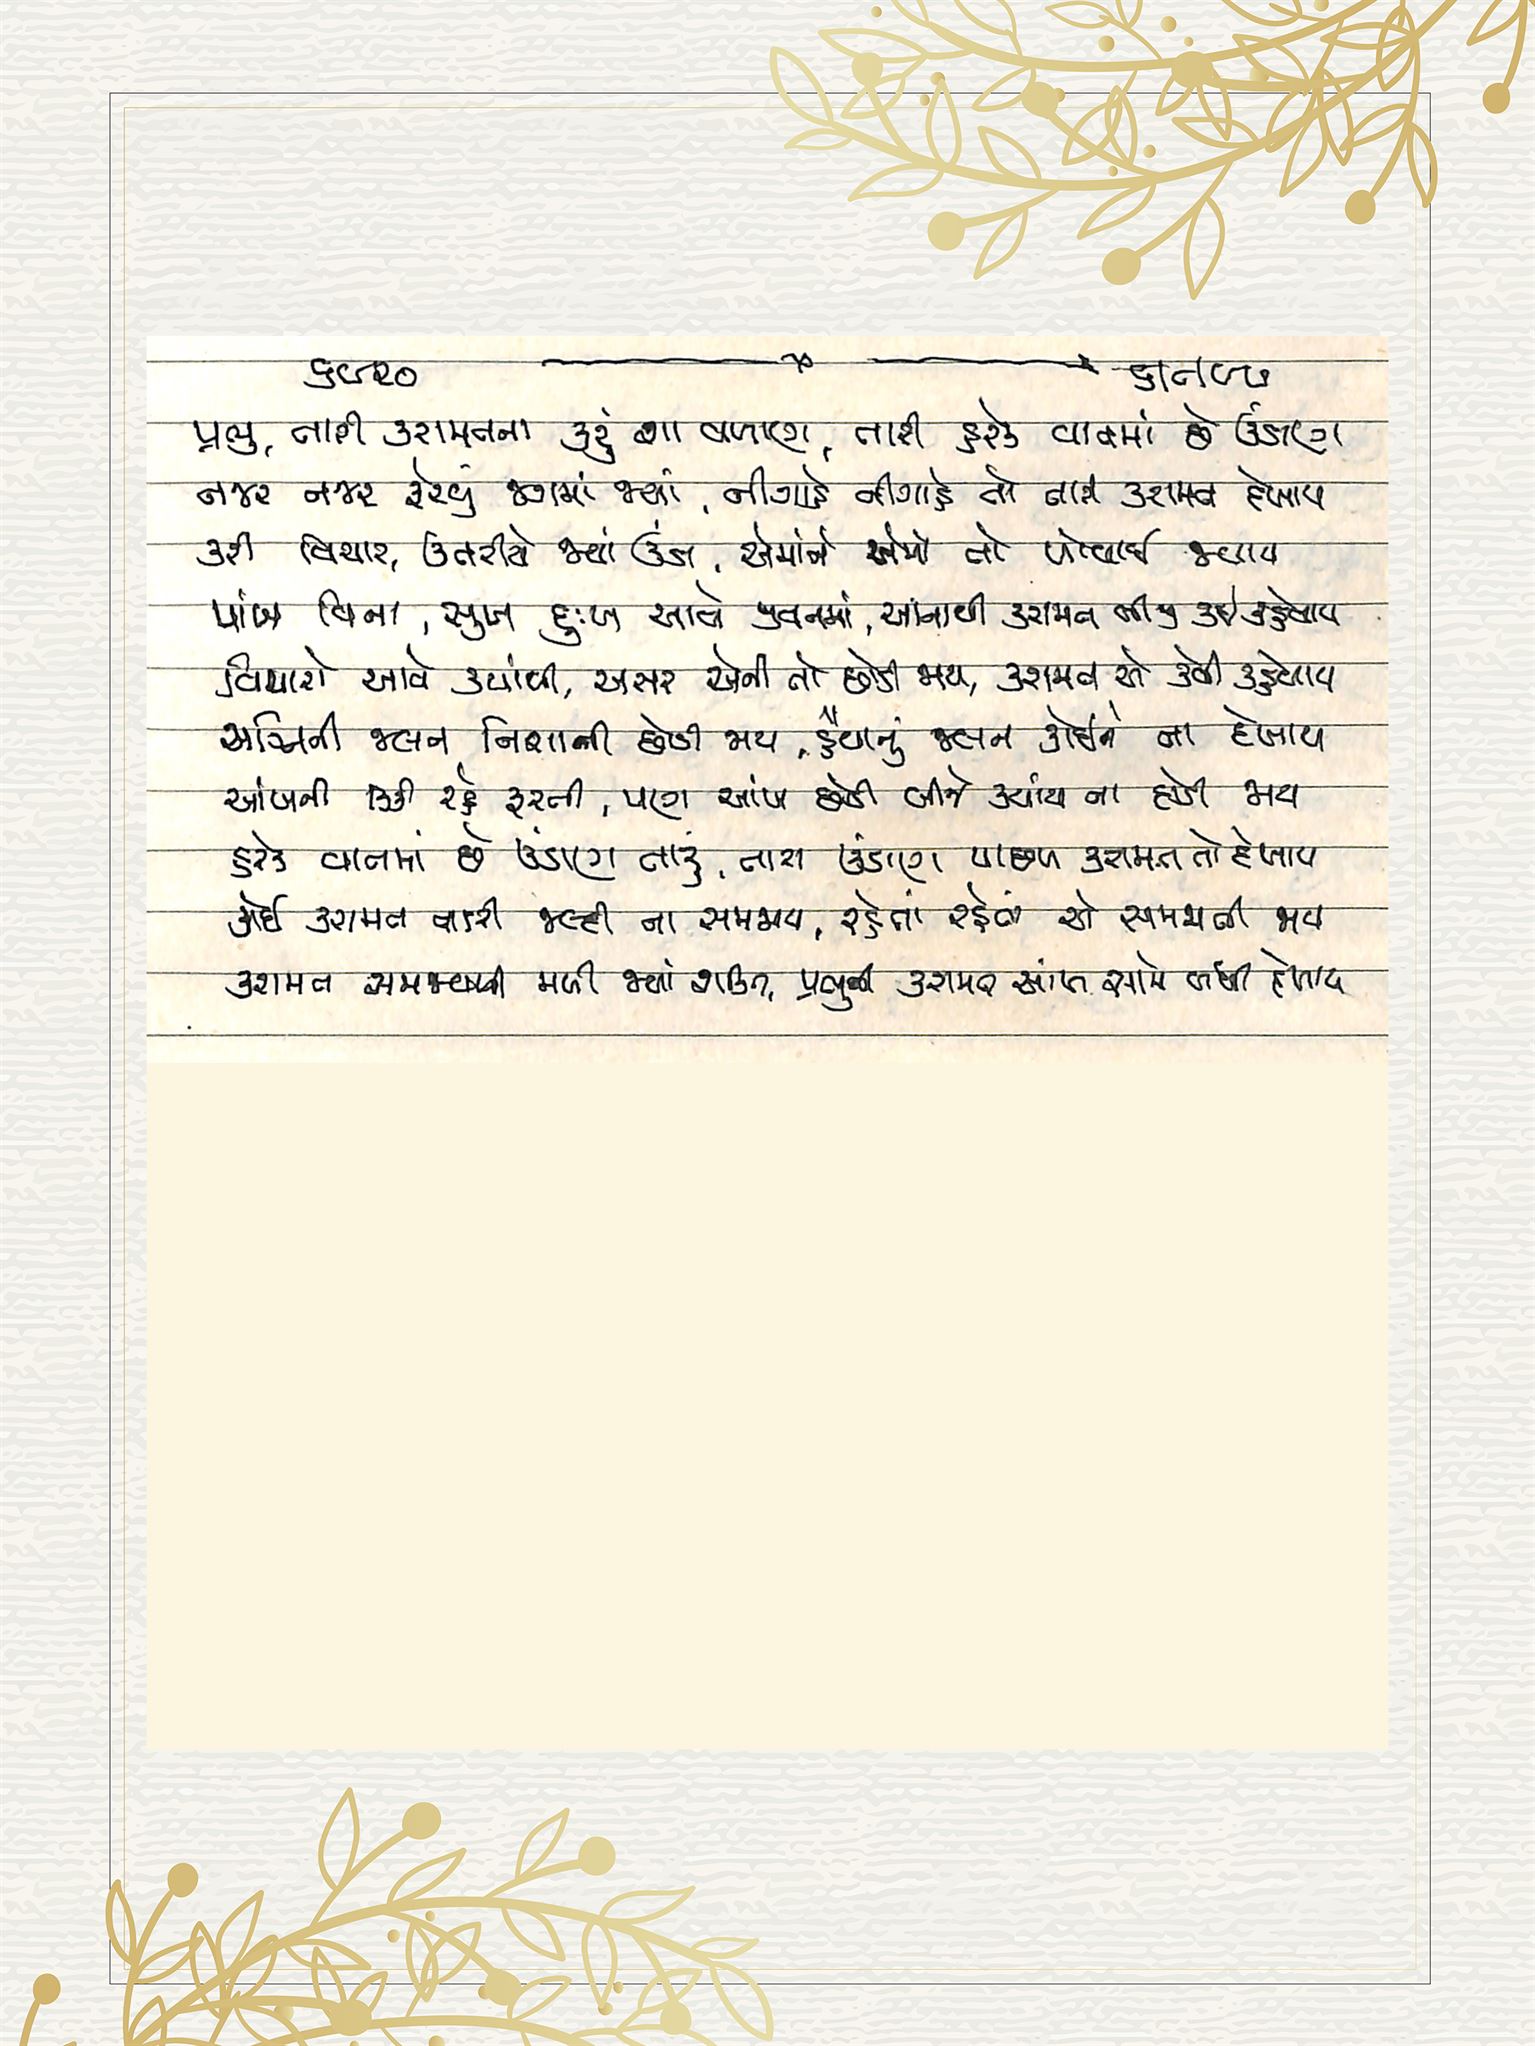 પ્રભુ, તારી કરામતના કરું શા વખાણ, તારી દરેક વાતમાં છે ઉંડાણ
નજર નજર ફેરવું જગમાં જ્યાં, નીગાહે નીગાહે તો તારી કરામત દેખાય
કરી વિચાર, ઉતરીયે જ્યાં ઉંડા, એમાંને એમાં તો ખોવાઈ જવાય
પાંખ વિના, સુખ દુઃખ આવે જીવનમાં, આનાથી કરામત બીજી કઈ કહેવાય
વિચારો આવે ક્યાંથી, અસર એની તો છોડી જાય, કરામત એ કેવી કહેવાય
અગ્નિની જલન નિશાની છોડી જાય, હૈયાનું જલન કોઈને ના દેખાય
આંખની કીકી રહે ફરતી, પણ આંખ છોડી બીજે ક્યાંય ના દોડી જાય
દરેક વાતમાં છે ઉંડાણ તારું, તારા ઉંડાણ પાછળ કરામત તો દેખાય
કોઈ કરામત તારી જલ્દી ના સમજાય, રહેતાં રહેતાં એ સમજાતી જાય
કરામત સમજવાની મળી જ્યાં શક્તિ, પ્રભુની કરામત આંખ સામે બધી દેખાય